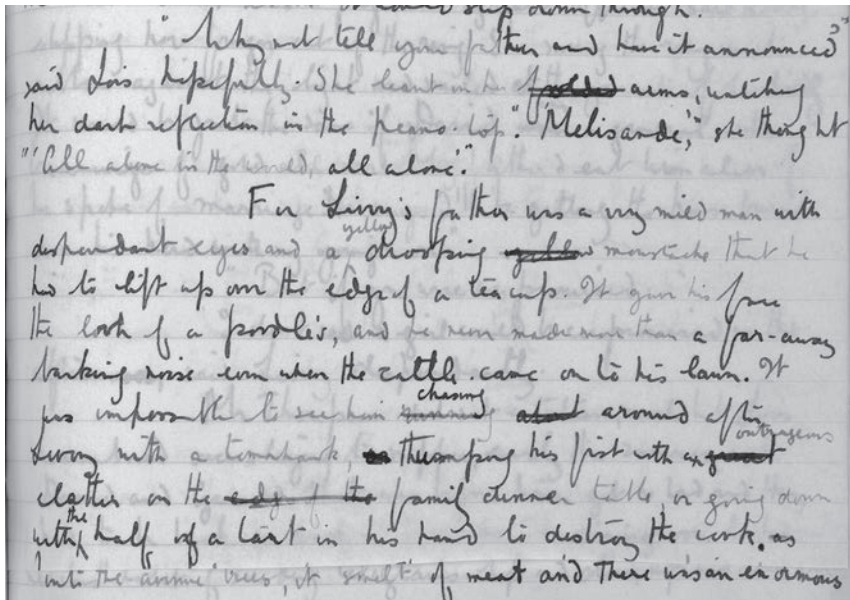 slip down through.
"Why not tell your father and have it announced"
said Lois hopefully. She leant in her folded arms, watching
her dark reflection in the piano-top. "'Melisande,'" she thought
"'All alone in the world, all alone.'"
For Livvy's father was a very mild man with
despondant eyes and a yellow drooping yellow moustache that he
had to lift up over the edge of a tea cup. It gave his face
the look of a poodle's, and he never made more than a far-away
barking noise even when the cattle came on to his lawn. It
was impossible to see him chasing running about around after
Livvy with a tomahawk, or thumping his fist with an outrageous great
clatter on the edge of the family dinner table, or going down
with the half of a tart in his hand to destroy the cook. as
of meat and there was an enormous